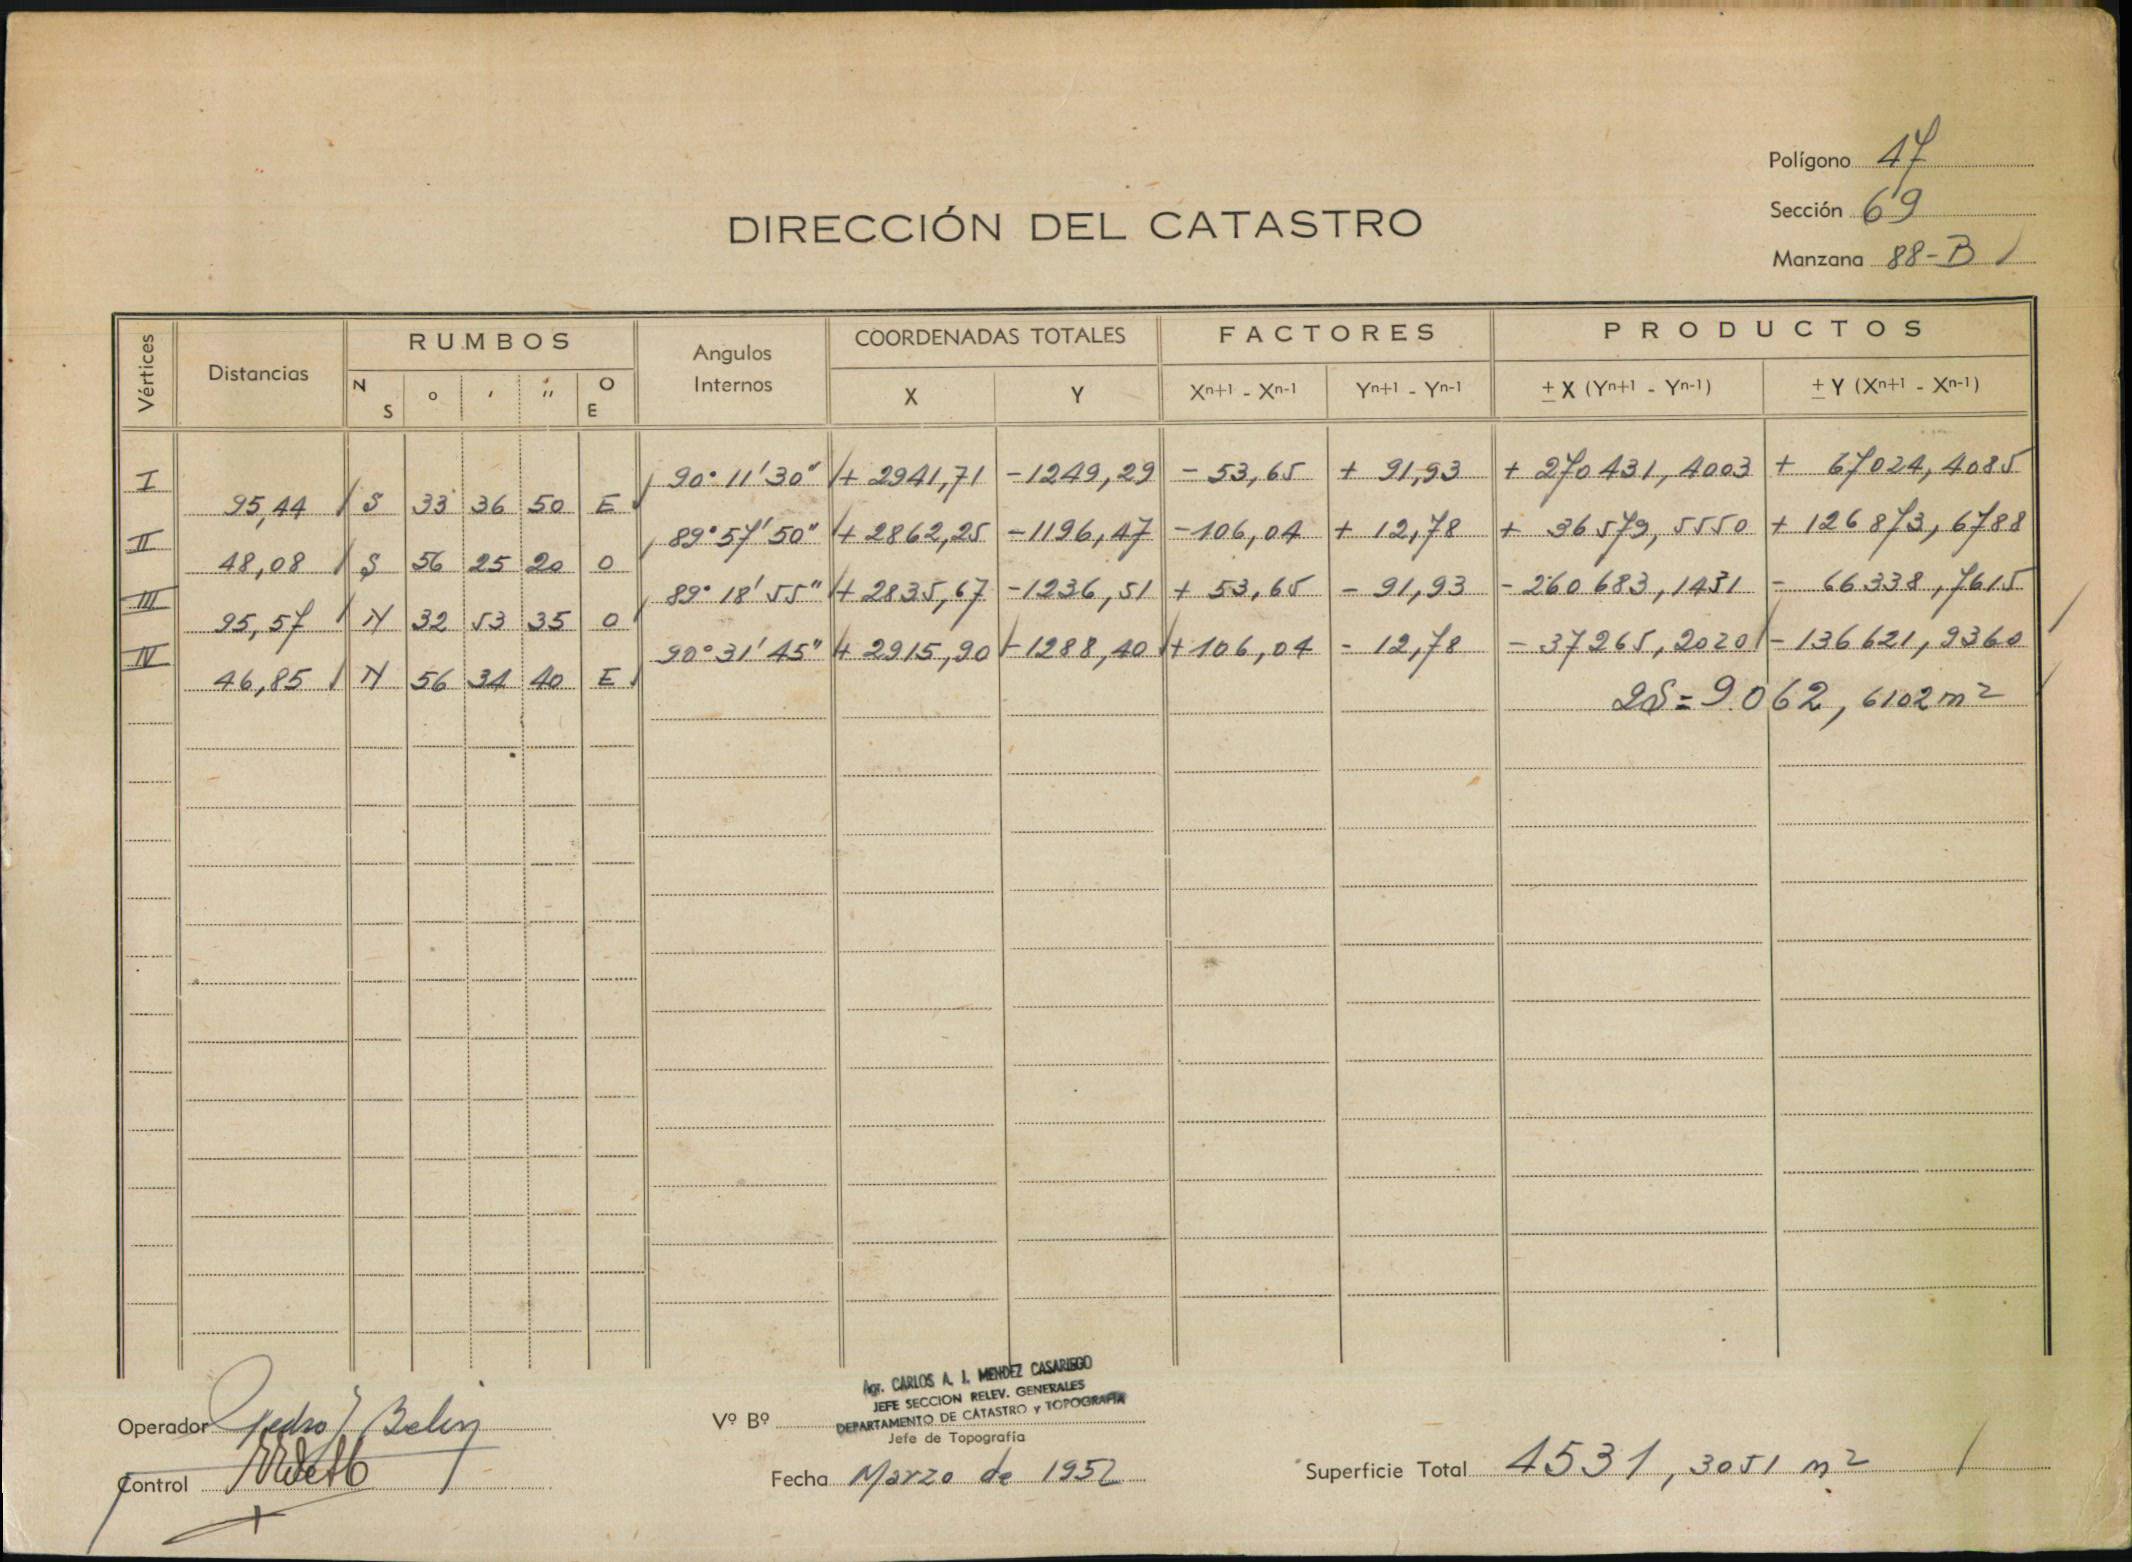 Polígono 47
Sección 69
Manzana 88-B
DIRECCIÓN DEL CATASTRO
Vértices Distancias RUMBOS Angulos Internos COORDENADAS TOTALES FACTORES PRODUCTOS
N S o ' '' O E X Y Xn+1 - Xn-1 Yn+1 - Yn-1 ± X (Yn+1 - Yn-1) ± Y (Xn+1 - Xn-1)
I 90° 11' 30" + 2941,71 -1249,29 - 53,65 + 91,93 + 270431,4003 + 67024,4085
95,44 S 33 36 50 E
II 89° 57' 50" + 2862,25 -1196,47 -106,04 + 12,78 + 36579,5550 + 126873,6788
48,08 S 56 25 20 O
III 89° 18' 55" + 2835,67 -1236,51 + 53,65 - 91,93 - 260683,1431 - 66338,7615
95,57 N 32 53 35 O
IV 90° 31' 45" + 2915,90 -1288,40 +106,04 - 12,78 - 37265,2020 - 136621,9360
46,85 N 56 34 40 E
2S = 9.062,6102 m2
Agr. CARLOS A. I. MENDEZ CASARIEGO
JEFE SECCION RELEV. GENERALES
DEPARTAMENTO DE CATASTRO y TOPOGRAFIA
Operador Pedro J Belin
Vº Bº
Jefe de Topografía
Control
Fecha Marzo de 1952
Superficie Total 4531,3051 m2